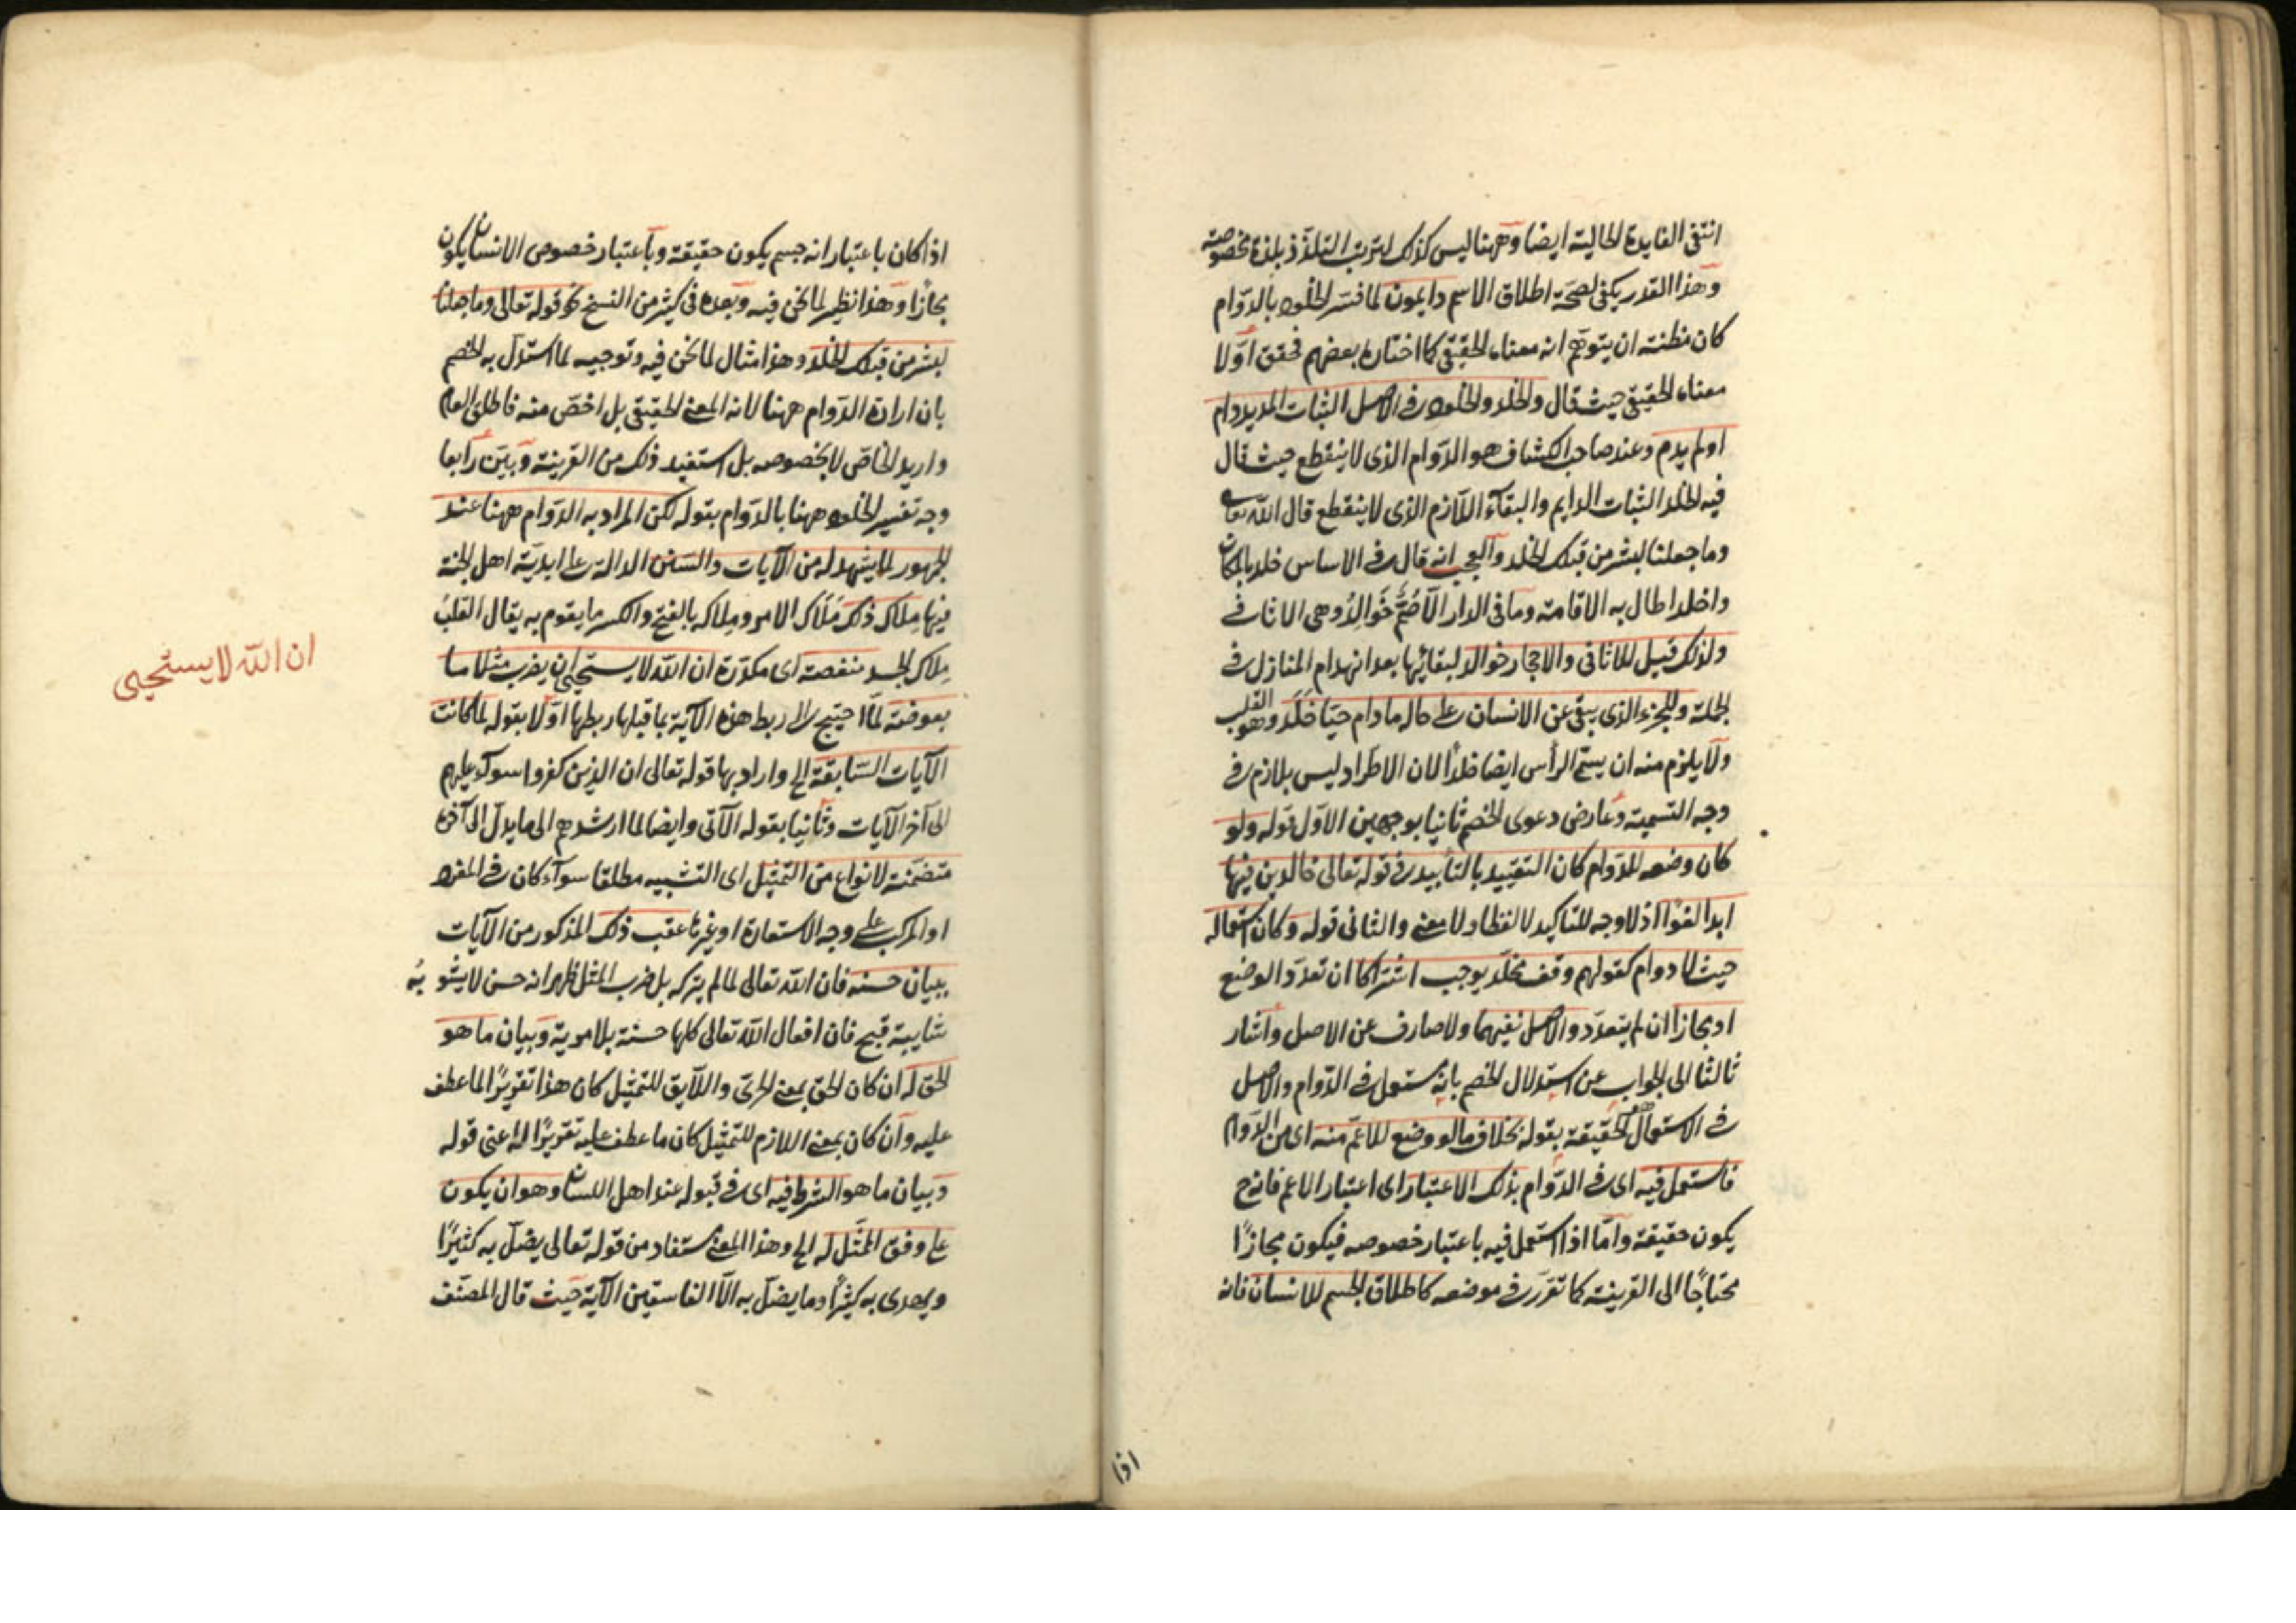 انتفى الفايدة الحالية ايضا وههنا ليس كذلك لترتب التلذذ بلذة مخصوصة
وهذا القدر يكفى لصحة اطلاق الاسم دايمون لما فسر الخلود بالدوام
كان مظنة ان يتوهم انه معناه الحقيقى كما اختاره بعضهم فحقق اولا
معناه الحقيقى حيث قال والخلد والخلود فى الاصل الثبات المديد دام
او لم يدم وعند صاحب الكشاف هو الدوام الذى لا ينقطع حيث قال
فيه الخلد الثبات الدايم والبقآء اللازم الذى لا ينقطع قال الله تعالى
وما جعلنا لبشر من قبلك الخلد والعجب انه قال فى الاساس خلد بالمكان
واخلد اطال به الاقامة وما فى الدار الا صُمٌّ خَوَالِدُ وهى الاثافى
ولذلك قيل للاثافى والاحجار خوالد لبقائها بعد انهدام المنازل فى
الجملة وللجزء الذى يبقى عن الانسان على حاله مادام حيّا خَلَد وهو القلب
ولا يلزم منه ان يسمى الرأس ايضا خلدا لان الاطراد ليس بلازم فى
وجه التسمية وعارض دعوى الخصم ثانيا بوجهين الاول قوله ولو
كان وضعه للدوام كان التقييد بالتأبيد فى قوله تعالى خالدين فيها
ابدا لغوًا اذ لا وجه للتاكيد لا لفظا ولا معنى والثانى قوله وكان استعماله
حيث لا دوام كقولهم وقف مخلّد يوجب اشتراكا ان تعدّد الوضع
او مجازا ان لم يتعدّد والاصل نفيهما ولا صارف عن الاصل واشار
ثالثا الى الجواب عن استدلال الخصم بانه مستعمل فى الدوام والاصل
فى الاستعمال الحقيقة بقوله بخلاف ما لو وضع للاعمّ منه اى من الدوام
فاستعمل فيه اى فى الدوام بذلك الاعتبار اى اعتبار الاعم فانه ح
يكون حقيقة وامّا اذا استعمل فيه باعتبار خصوصه فيكون مجازًا
محتاجًا الى القرينة كما تقرر فى موضعه كاطلاق الجسم للانسان فانه
اذا
اذا كان باعتبار انه جسم يكون حقيقة وباعتبار خصوص الانسان يكون
مجازًا وهذا نظير لما نحن فيه وبعده فى كثير من النسخ نحو قوله تعالى وما جعلنا
لبشر من قبلك الخلد وهذا مثال لما نحن فيه وتوجيه لما استدل به الخصم
بان ارادة الدوام ههنا لا انه المعنى الحقيقى بل اخصّ منه فاطلق العام
واريد الخاصّ لا بخصوصه بل استفيد ذلك من القرينة وبيّن رابعا
وجه تفسير الخلود ههنا بالدوام بقوله لكن المراد به الدوام ههنا عند
الجمهور لما يشهد له من الآيات والسنن الدالة على ابدية اهل الجنة
فيها مِلاك ذلك مَلاك الامر ومِلاكه بالفتح والكسر ما يقوم به يقال القلبُ
مِلاك الجسد منغصة اى مكدّرة ان الله لا يستحيى ان يضرب مثلا ما
بعوضة لمّا احتيج الى ربط هذه الآية بما قبلها ربطها اوّلا بقوله لما كانت
الآيات السّابقة الخ واراد بها قوله تعالى ان الذين كفروا سوآء عليهم
الى آخر الآيات وثانيا بقوله الآتى وايضا لما ارشدهم الى ما يدلّ الى آخره
متضمّنة لانواع من التمثيل اى التشبيه مطلقا سوآء كان فى المفرد
او المركب على وجه الاستعارة او غيرها عقب ذلك المذكور من الآيات
ببيان حسنه فان الله تعالى لما لم يتركه بل ضرب المثل ظهر انه حسن لا يشوبُه
شايبة قبح فان افعال الله تعالى كلها حسنة بلا مرية وبيان ما هو
الحق له ان كان الحق بمعنى الحرىّ واللايق للتمثيل كان هذا تقريرًا لما عطف
عليه وان كان بمعنى اللازم للتمثيل كان ما عطف عليه تقريرًا له اعنى قوله
وبيان ما هو الشرط فيه اى فى قبوله عند اهل اللسان وهو ان يكون
على وفق الممثّل له الخ وهذا المعنى مستفاد من قوله تعالى يضلّ به كثيرًا
ويهدى به كثيرًا وما يضلّ به الّا الفاسقين الآية حيث قال المصنّف
ان الله لا يستحيى